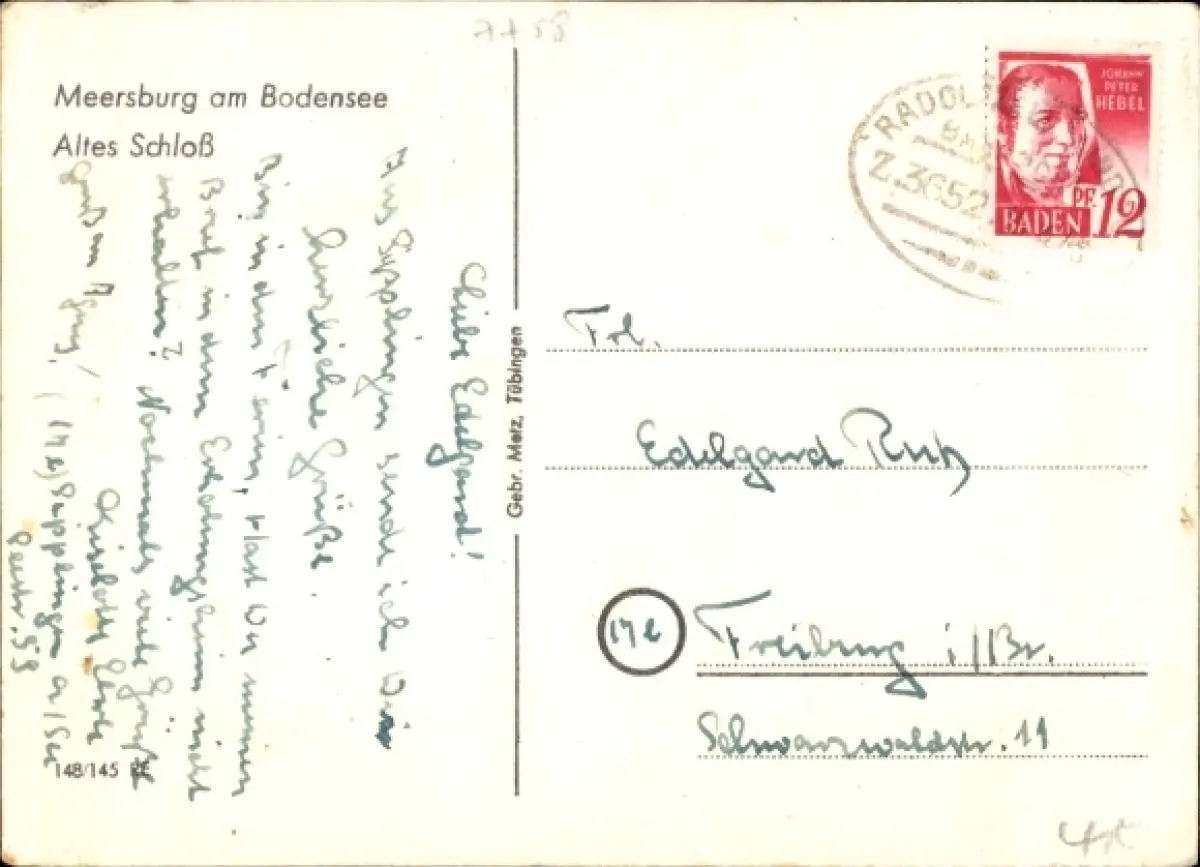 Meersburg am Bodensee
Altes Schloß
Liebe Edelgard!
Aus Sipplingen sende ich Dir
herzliche Grüße.
Bin in den Ferien, Hast Du meinen
Brief in dem Erholungsheim nicht
erhalten? Nochmals viele Grüße
Liselotte
Gruß an
(17b) Sipplingen a/See
Seestr. 58
148/145
Gebr. Metz, Tübingen
JOHANN
PETER
HEBEL
PF. 12
BADEN
RADOL
Z.3652
Frl.
Edelgard
17b
Freiburg i/Br.
Schwarzwaldstr. 11